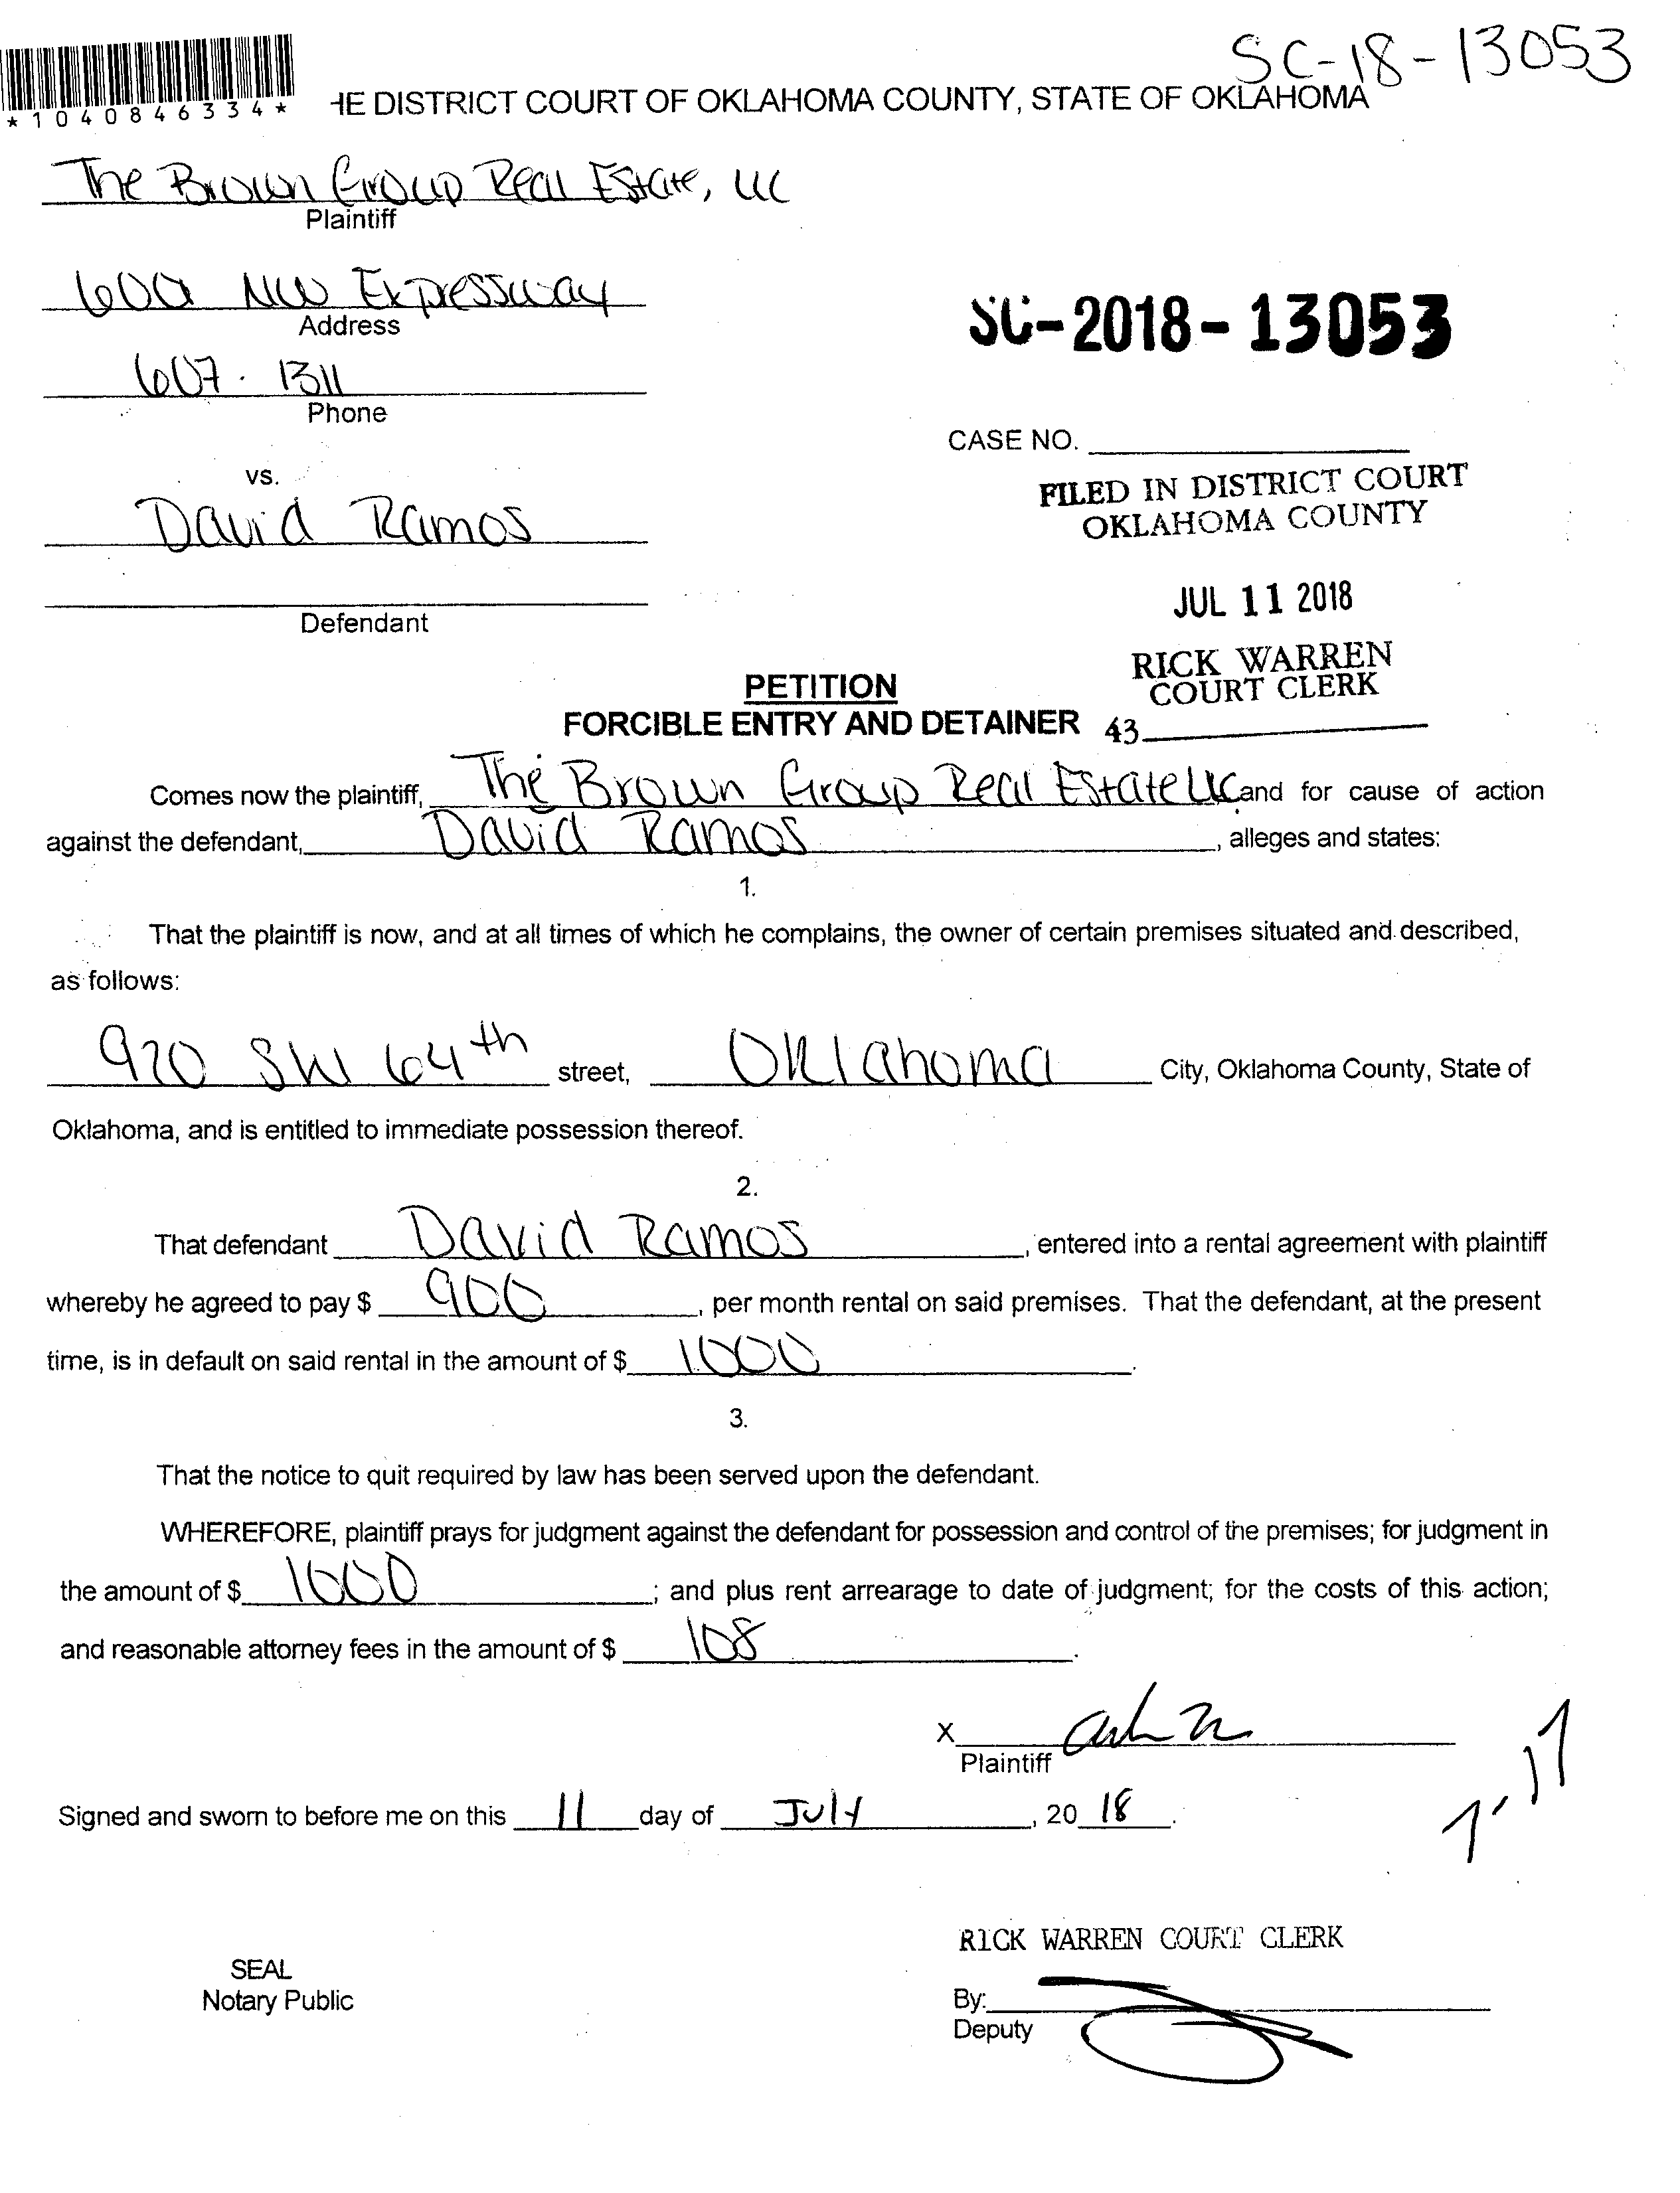 SC-18-13053
*1040846334*
HE DISTRICT COURT OF OKLAHOMA COUNTY, STATE OF OKLAHOMA
The Brown Group Real Estate, LLC
Plaintiff
NW Expressway
Address
SC-2018-13053
607 · 1311
Phone
CASE NO.
vs.
FILED IN DISTRICT COURT
OKLAHOMA COUNTY
David Ramos
JUL 11 2018
Defendant
RICK WARREN
COURT CLERK
PETITION
FORCIBLE ENTRY AND DETAINER
43
Comes now the plaintiff, The Brown Group Real Estate LLC and for cause of action
against the defendant, David Ramos, alleges and states:
1.
That the plaintiff is now, and at all times of which he complains, the owner of certain premises situated and described,
as follows:
920 SW 64th street, Oklahoma City, Oklahoma County, State of
Oklahoma, and is entitled to immediate possession thereof.
2.
That defendant David Ramos, entered into a rental agreement with plaintiff
whereby he agreed to pay $ 900, per month rental on said premises. That the defendant, at the present
time, is in default on said rental in the amount of $ 1000.
3.
That the notice to quit required by law has been served upon the defendant.
WHEREFORE, plaintiff prays for judgment against the defendant for possession and control of the premises; for judgment in
the amount of $ 1000; and plus rent arrearage to date of judgment; for the costs of this action;
and reasonable attorney fees in the amount of $ 108.
X
Plaintiff
Signed and sworn to before me on this 11 day of July, 20 18.
RICK WARREN COURT CLERK
SEAL
Notary Public
By:
Deputy